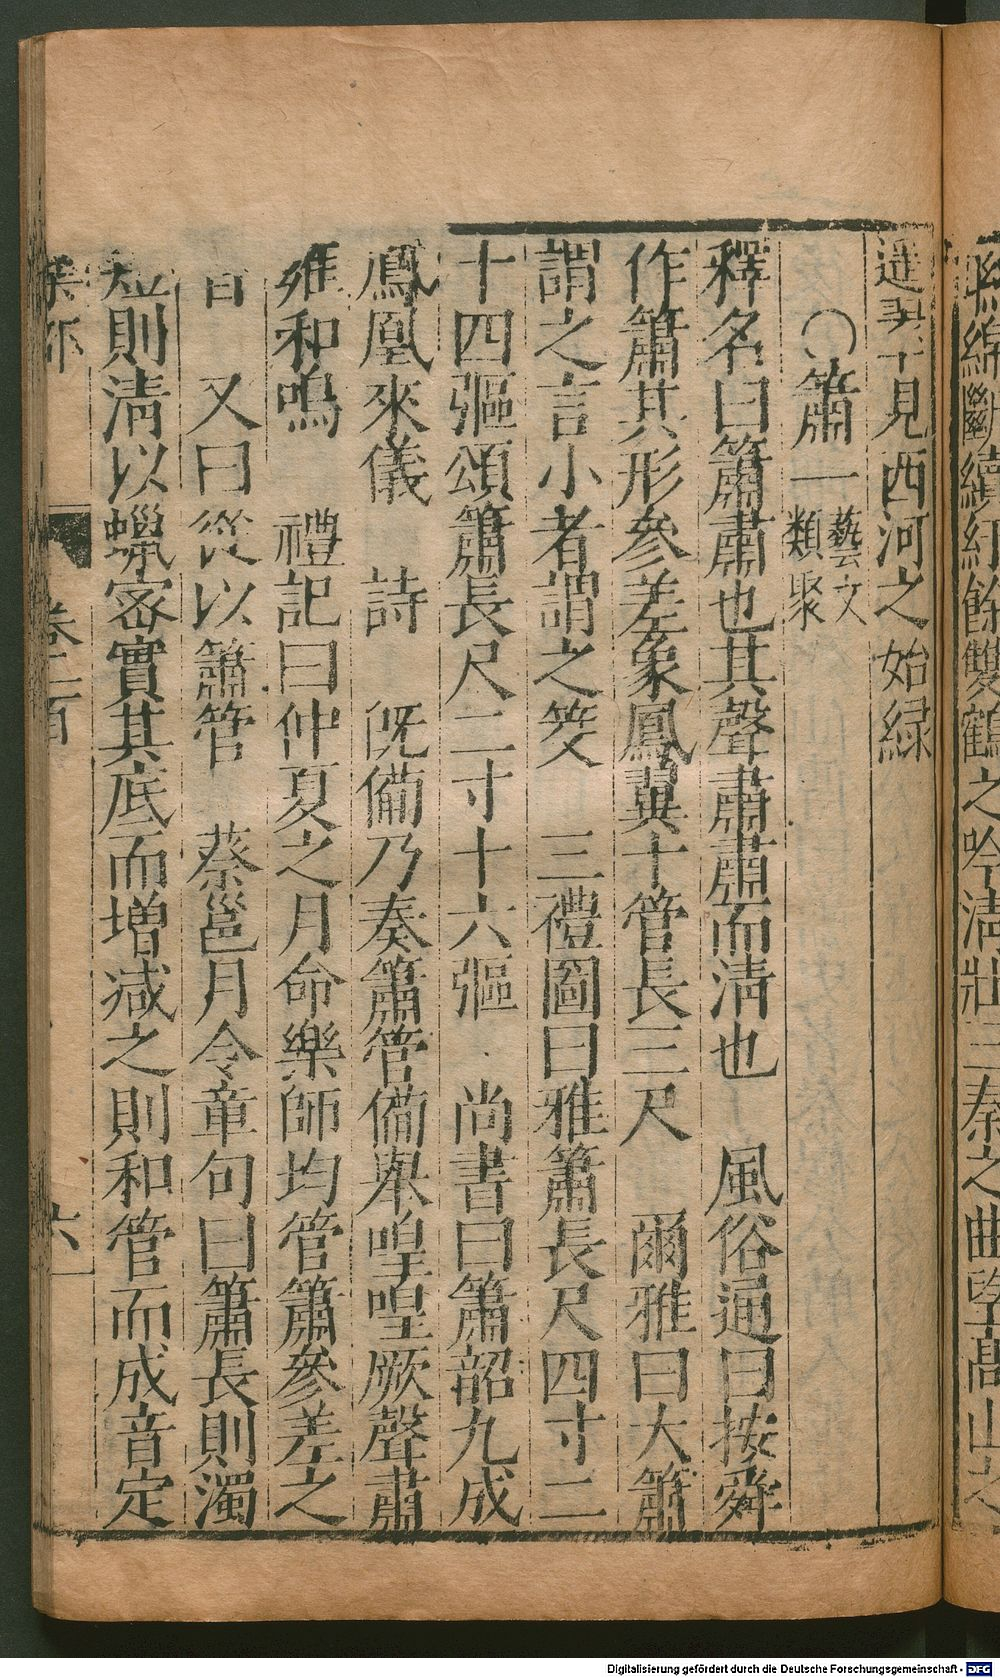 緜綿斷續紆餘雙鶴之吟淸壯三秦之曲望高山之
遥 見西河之始緑
○簫一藝文類聚
釋名曰簫肅也其聲肅肅而淸也　風俗通曰按舜
作簫其形參差象鳳翼十管長三尺　爾雅曰大簫
謂之言小者謂之筊　三禮圖曰雅簫長尺四寸二
十四彄頌簫長尺二寸十六彄　尚書曰簫韶九成
鳳凰來儀　詩　旣備乃奏簫管備舉喤喤厥聲肅
雝和鳴　禮記曰仲夏之月命樂師均管簫參差之
音　又曰從以簫管　蔡邕月令章句曰簫長則濁
短則淸以蠟宻實其底而增減之則和管而成音定
卷二百　六
Digitalisierung gefördert durch die Deutsche Forschungsgemeinschaft - DFG